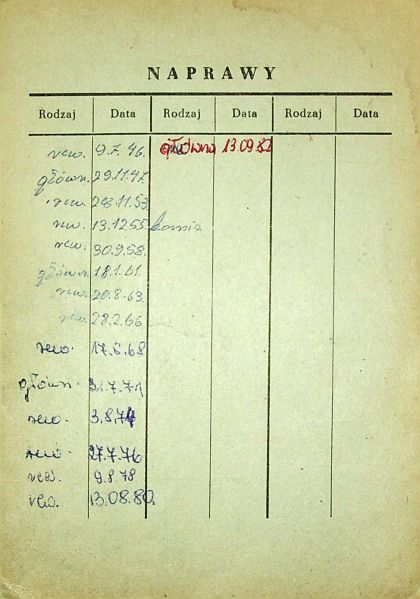 NAPRAWY
Rodzaj Data Rodzaj Data Rodzaj Data
rew. 9.7.46. główna 13.09.82
główn. 29.11.47.
rew. 28.11.53
rew. 13.12.55
rew. 30.9.58.
główn. 18.1.61
rew. 20.8.63.
rew. 28.2.66
rew. 17.6.68
główn. 31.7.71
rew. 3.8.74
rew. 27.7.76
rew. 9.8.78
rew. 13.08.80.